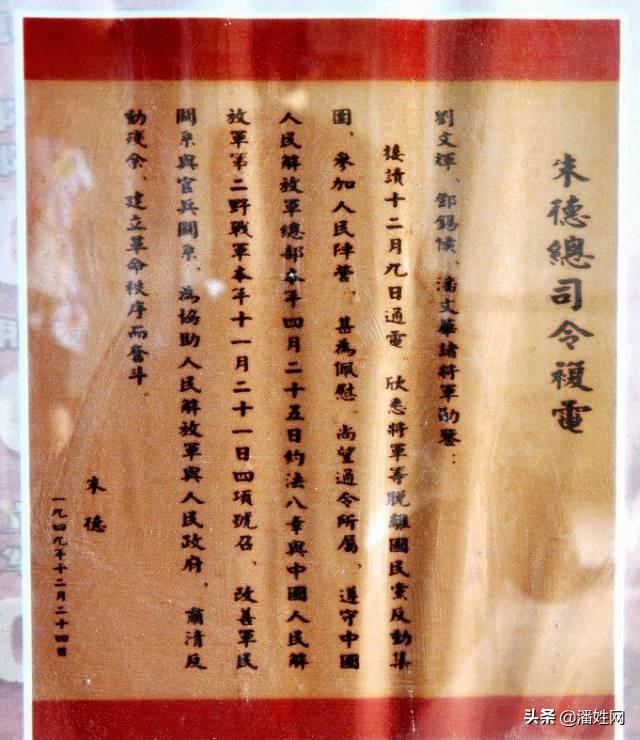 朱德總司令複電
劉文輝、鄧錫侯、潘文華諸將軍勛鑒：
接讀十二月九日通電 欣悉將軍等脫離國民黨反動集
團，參加人民陣營， 甚為佩慰 尚望通令所屬，遵守中國
人民解放軍總部本年四月二十五日約法八章與中國人民解
放軍第二野戰軍本年十一月二十一日四項號召，改善軍民
關系與官兵關系，為協助人民解放軍與人民政府，肅清反
動殘余、建立革命秩序而奮斗。
朱德
一九四九年十二月二十四日
头条 @潘姓网